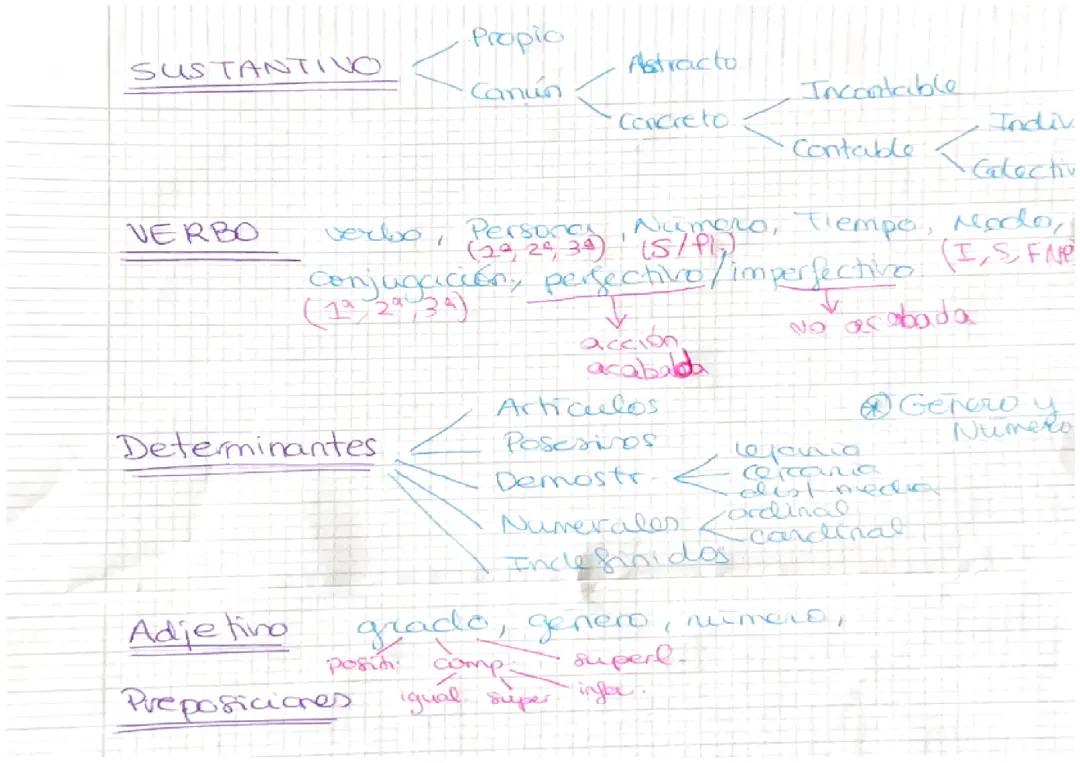 SUSTANTIVO
Propio
Común
Abstracto
Concreto
Incontable
Contable
Indiv
Colectiv
VERBO verbo, Persona, Número, Tiempo, Modo,
(1ª, 2ª, 3ª) (S/Pl.) (I, S, FNP
Conjugación, perfectivo/imperfectivo
(1ª, 2ª, 3ª)
acción acabada
No acabada
Determinantes
Artículos
Posesivos
Demostr.
lejanía
cercanía
dist media
Numerales
ordinal
cardinal
Indefinidos
* Género y Número
Adjetivo grado, género, número,
posit. comp. superl.
igual super. infer.
Preposiciones